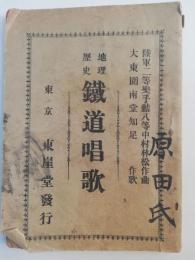 陸軍二等樂手勳八等中村林松作曲
大東園南堂知足 作歌
地理
歴史 鐵道唱歌
東京 東崖堂發行
原田氏